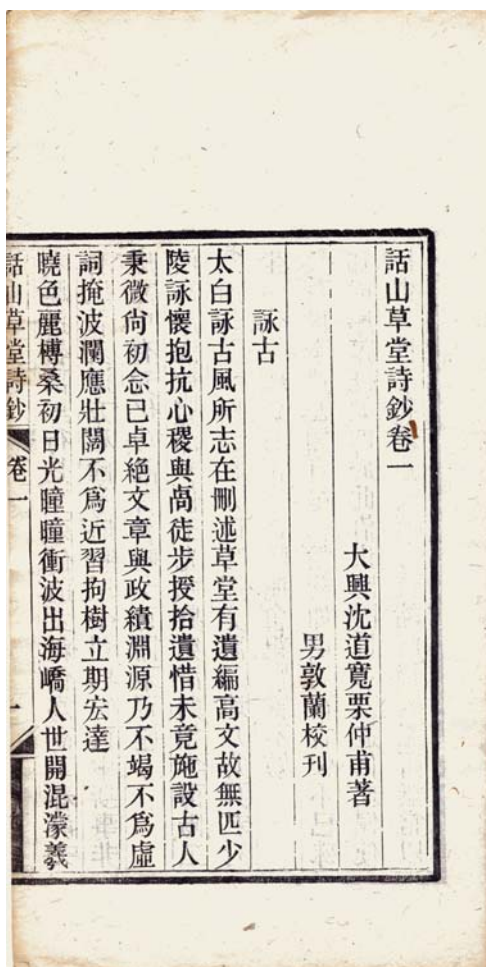 話山草堂詩鈔卷一
大興沈道寬栗仲甫著
男敦蘭校刊
詠古
太白詠古風所志在刪述草堂有遺編高文故無匹少
陵詠懷抱抗心稷與卨徒步授拾遺惜未竟施設古人
秉微尚初念已卓絕文章與政績淵源乃不竭不爲虛
詞掩波瀾應壯闊不爲近習拘樹立期宏達
曉色麗榑桑初日光曈曈衝波出海嶠人世開混濛羲
話山草堂詩鈔 卷一 一